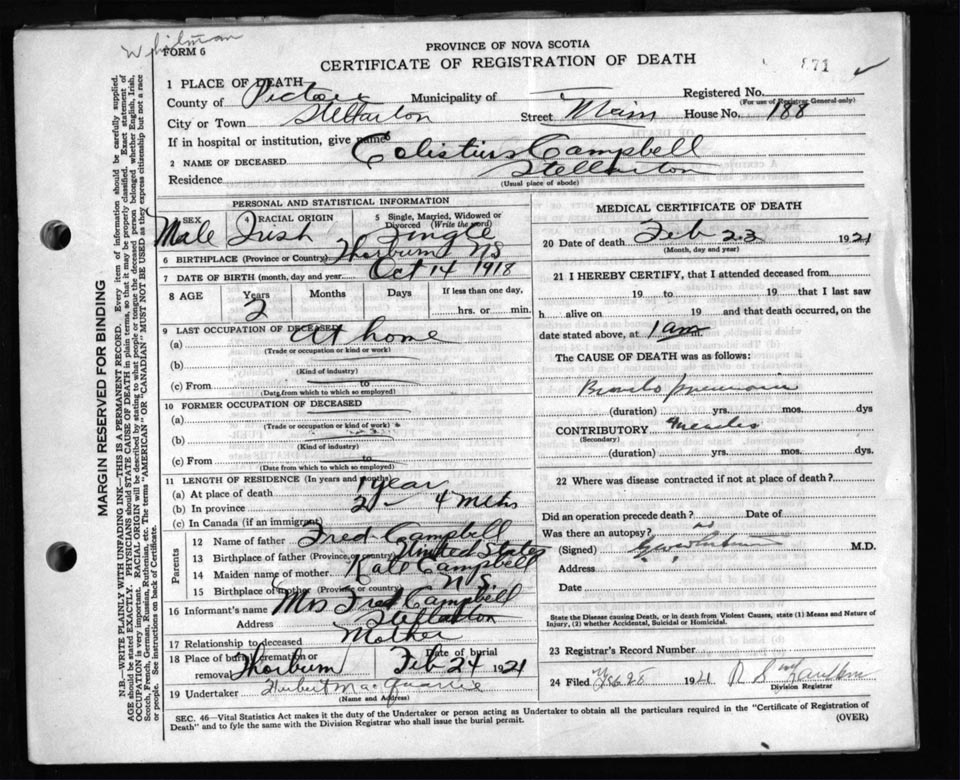 FORM 6
PROVINCE OF NOVA SCOTIA
CERTIFICATE OF REGISTRATION OF DEATH
871
1 PLACE OF DEATH
County of Pictou Municipality of — Registered No.
(For use of Registrar General only)
City or Town Stellarton Street Main House No. 188
If in hospital or institution, give name
2 NAME OF DECEASED Calistius Campbell
Residence Stellarton
(Usual place of abode)
PERSONAL AND STATISTICAL INFORMATION
3 SEX Male
4 RACIAL ORIGIN Irish
5 Single, Married, Widowed or Divorced (Write the word) Single
6 BIRTHPLACE (Province or Country) Thorburn NS
7 DATE OF BIRTH (month, day and year) Oct 14 1918
8 AGE Years Months Days If less than one day,
2 hrs. or min.
9 LAST OCCUPATION OF DECEASED
(a) At home
(Trade or occupation or kind or work)
(b)
(Kind of industry)
(c) From to
(Date from which to which so employed)
10 FORMER OCCUPATION OF DECEASED
(a)
(Trade or occupation or kind of work)
(b)
(Kind of industry)
(c) From to
(Date from which to which so employed)
11 LENGTH OF RESIDENCE (In years and months)
(a) At place of death 1 year
(b) In province 2 – 4 mths
(c) In Canada (if an immigrant)
Parents
12 Name of father Fred Campbell
13 Birthplace of father (Province or country) United States
14 Maiden name of mother Kate Campbell
15 Birthplace of mother (Province or country) N.S.
16 Informant's name Mrs Fred Campbell
Address Stellarton
17 Relationship to deceased Mother
18 Place of burial, cremation or removal Thorburn Date of burial Feb 24 1921
19 Undertaker Herbert MacQuarrie
(Name and Address)
MEDICAL CERTIFICATE OF DEATH
20 Date of death Feb 23 1921
(Month, day and year)
21 I HEREBY CERTIFY, that I attended deceased from
19 to 19 that I last saw
h alive on 19 and that death occurred, on
date stated above, at 1 am m.
The CAUSE OF DEATH was as follows:
Broncho pneumonia
(duration) yrs. mos. dys
CONTRIBUTORY Measles
(Secondary)
(duration) yrs. mos. dys.
22 Where was disease contracted if not at place of death?
Did an operation precede death? Date of
Was there an autopsy? no
(Signed) M.D.
Address
Date
State the Disease causing Death, or in death from Violent Causes, state (1) Means and Nature of Injury, (2) whether Accidental, Suicidal or Homicidal.
23 Registrar's Record Number
24 Filed Feb 28 1921
Division Registrar
SEC. 46—Vital Statistics Act makes it the duty of the Undertaker or person acting as Undertaker to obtain all the particulars required in the "Certificate of Registration of
Death" and to fyle the same with the Division Registrar who shall issue the burial permit.
(OVER)
MARGIN RESERVED FOR BINDING
N.B.—WRITE PLAINLY WITH UNFADING INK—THIS IS A PERMANENT RECORD. Every item of information should be carefully supplied.
AGE should be stated EXACTLY. PHYSICIANS should STATE CAUSE OF DEATH in plain terms, so that it may be properly classified. Exact statement of
OCCUPATION is very important. RACIAL ORIGIN will be described by stating to what people or tongue the deceased person belonged whether English, Irish,
Scotch, French, German, Russian, Ruthenian, etc. The terms "AMERICAN" OR "CANADIAN" MUST NOT BE USED as they express citizenship but not a race
or people. See instructions on back of Certificate.